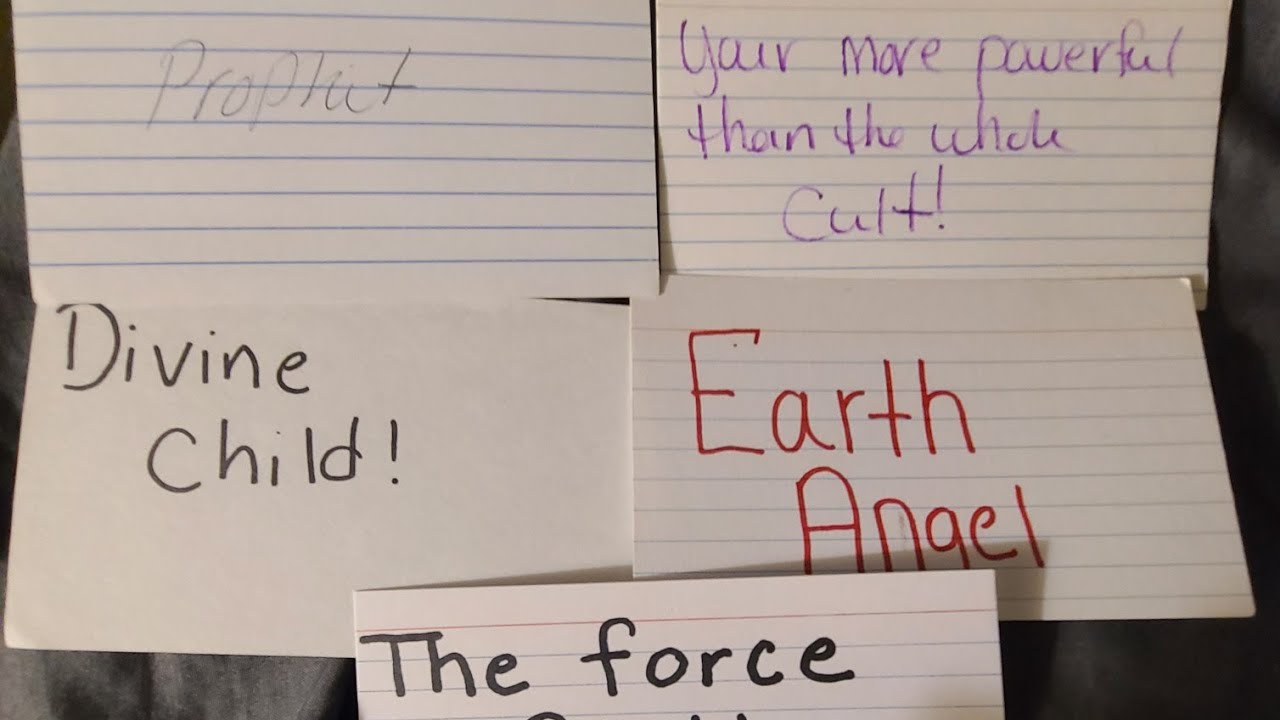 Prophit
Your more powerful
than the whole
Cult!
Divine
Child!
Earth
Angel
The force